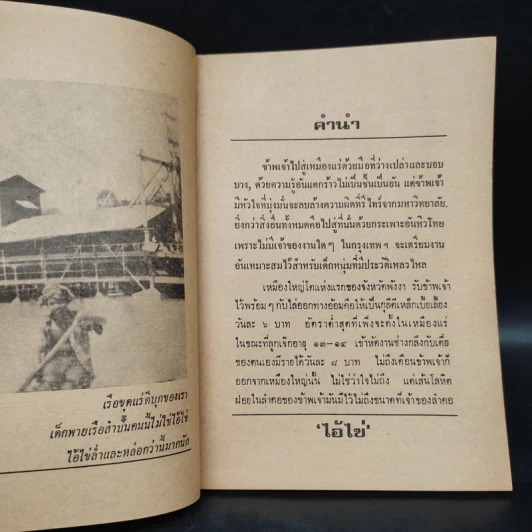 เรือขุดแร่ดีบุกของเรา
เด็กพายเรือลำบั้นคนนี้ไม่ใช่ไอ้ไข่
ไอ้ไข่ล่ำและหล่อกว่านี้มากนัก
คำนำ
ข้าพเจ้าไปสู่เหมืองแร่ด้วยมือที่ว่างเปล่าและบอบ
บาง, ด้วยความรู้อันแตกร้าวไม่เป็นชิ้นเป็นอัน แต่ข้าพเจ้า
มีหัวใจที่มุ่งมั่นจะลบล้างความผิดที่รีไทร์จากมหาวิทยาลัย.
ยิ่งกว่าสิ่งอื่นทั้งหมดคือไปสู่ที่นั่นด้วยกระเพาะอันหิวโหย
เพราะไม่มีเจ้าของงานใดๆ ในกรุงเทพฯ จะเตรียมงาน
อันเหมาะสมไว้สำหรับเด็กหนุ่มที่มีประวัติเหลวไหล
เหมืองใหญ่โตแห่งแรกของจังหวัดพังงา รับข้าพเจ้า
ไว้พร้อมๆ กับไล่ออกทางอ้อมคือให้เป็นกุลีตีเหล็กเบี้ยเลี้ยง
วันละ ๖ บาท อัตราต่ำสุดที่เพิ่งจะตั้งในเหมืองแร่
ในขณะที่ลูกเจ๊กอายุ ๑๓–๑๔ เข้าหัดงานช่างกลึงกับเตี่ย
ของตนเองมีรายได้วันละ ๘ บาท ไม่ถึงเดือนข้าพเจ้าก็
ออกจากเหมืองใหญ่นั้น ไม่ใช่ว่าใจไม่ถึง แต่เส้นโลหิต
ฝอยในลำคอของข้าพเจ้ามันมีไว้ไม่ถึงขนาดที่เจ้าของลำคอ
'ไอ้ไข่'